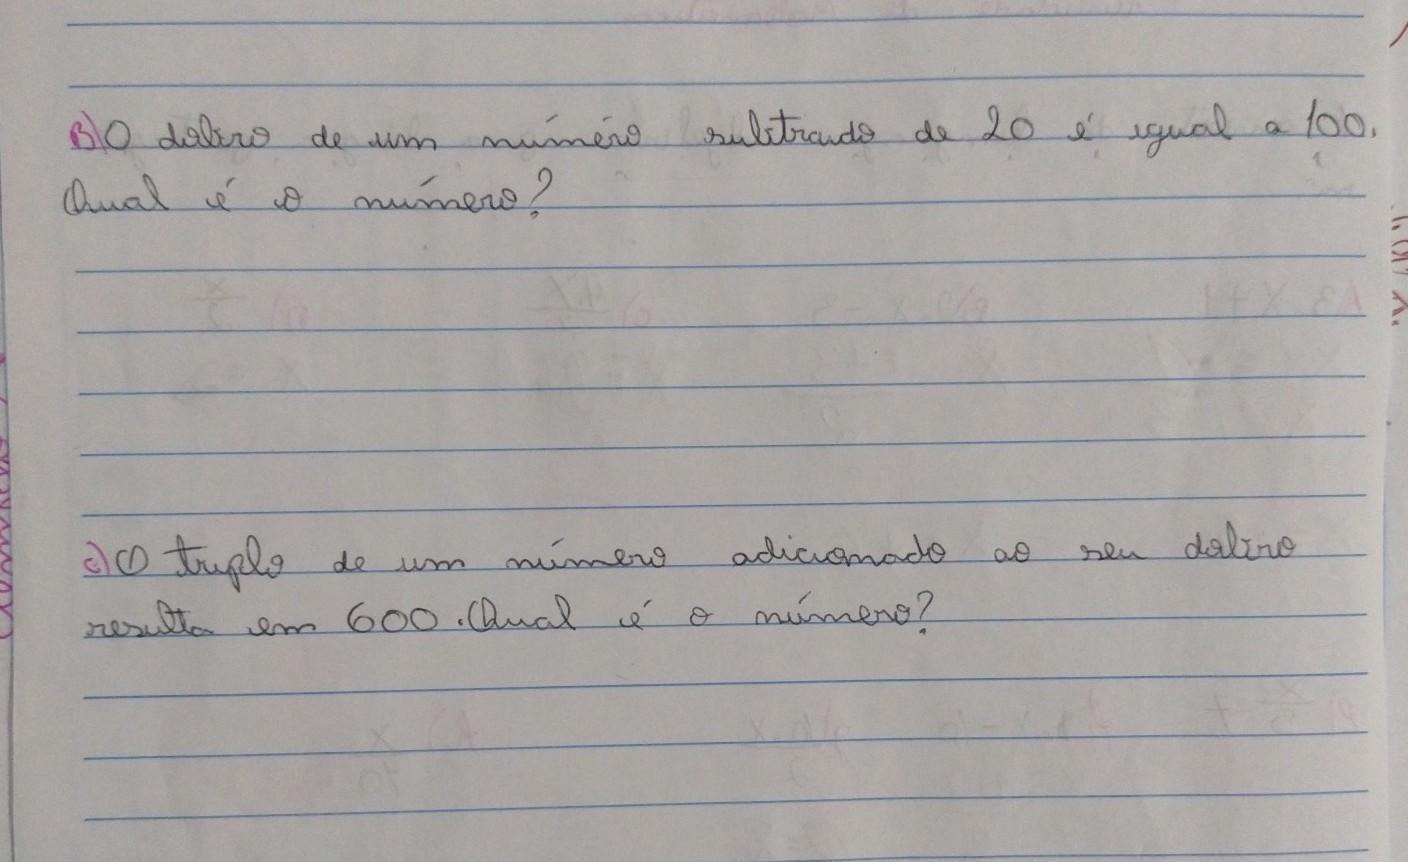 B) O dobro de um número subtraído de 20 é igual a 100.
Qual é o número?
c) O triplo de um número adicionado ao seu dobro
resulta em 600. Qual é o número?